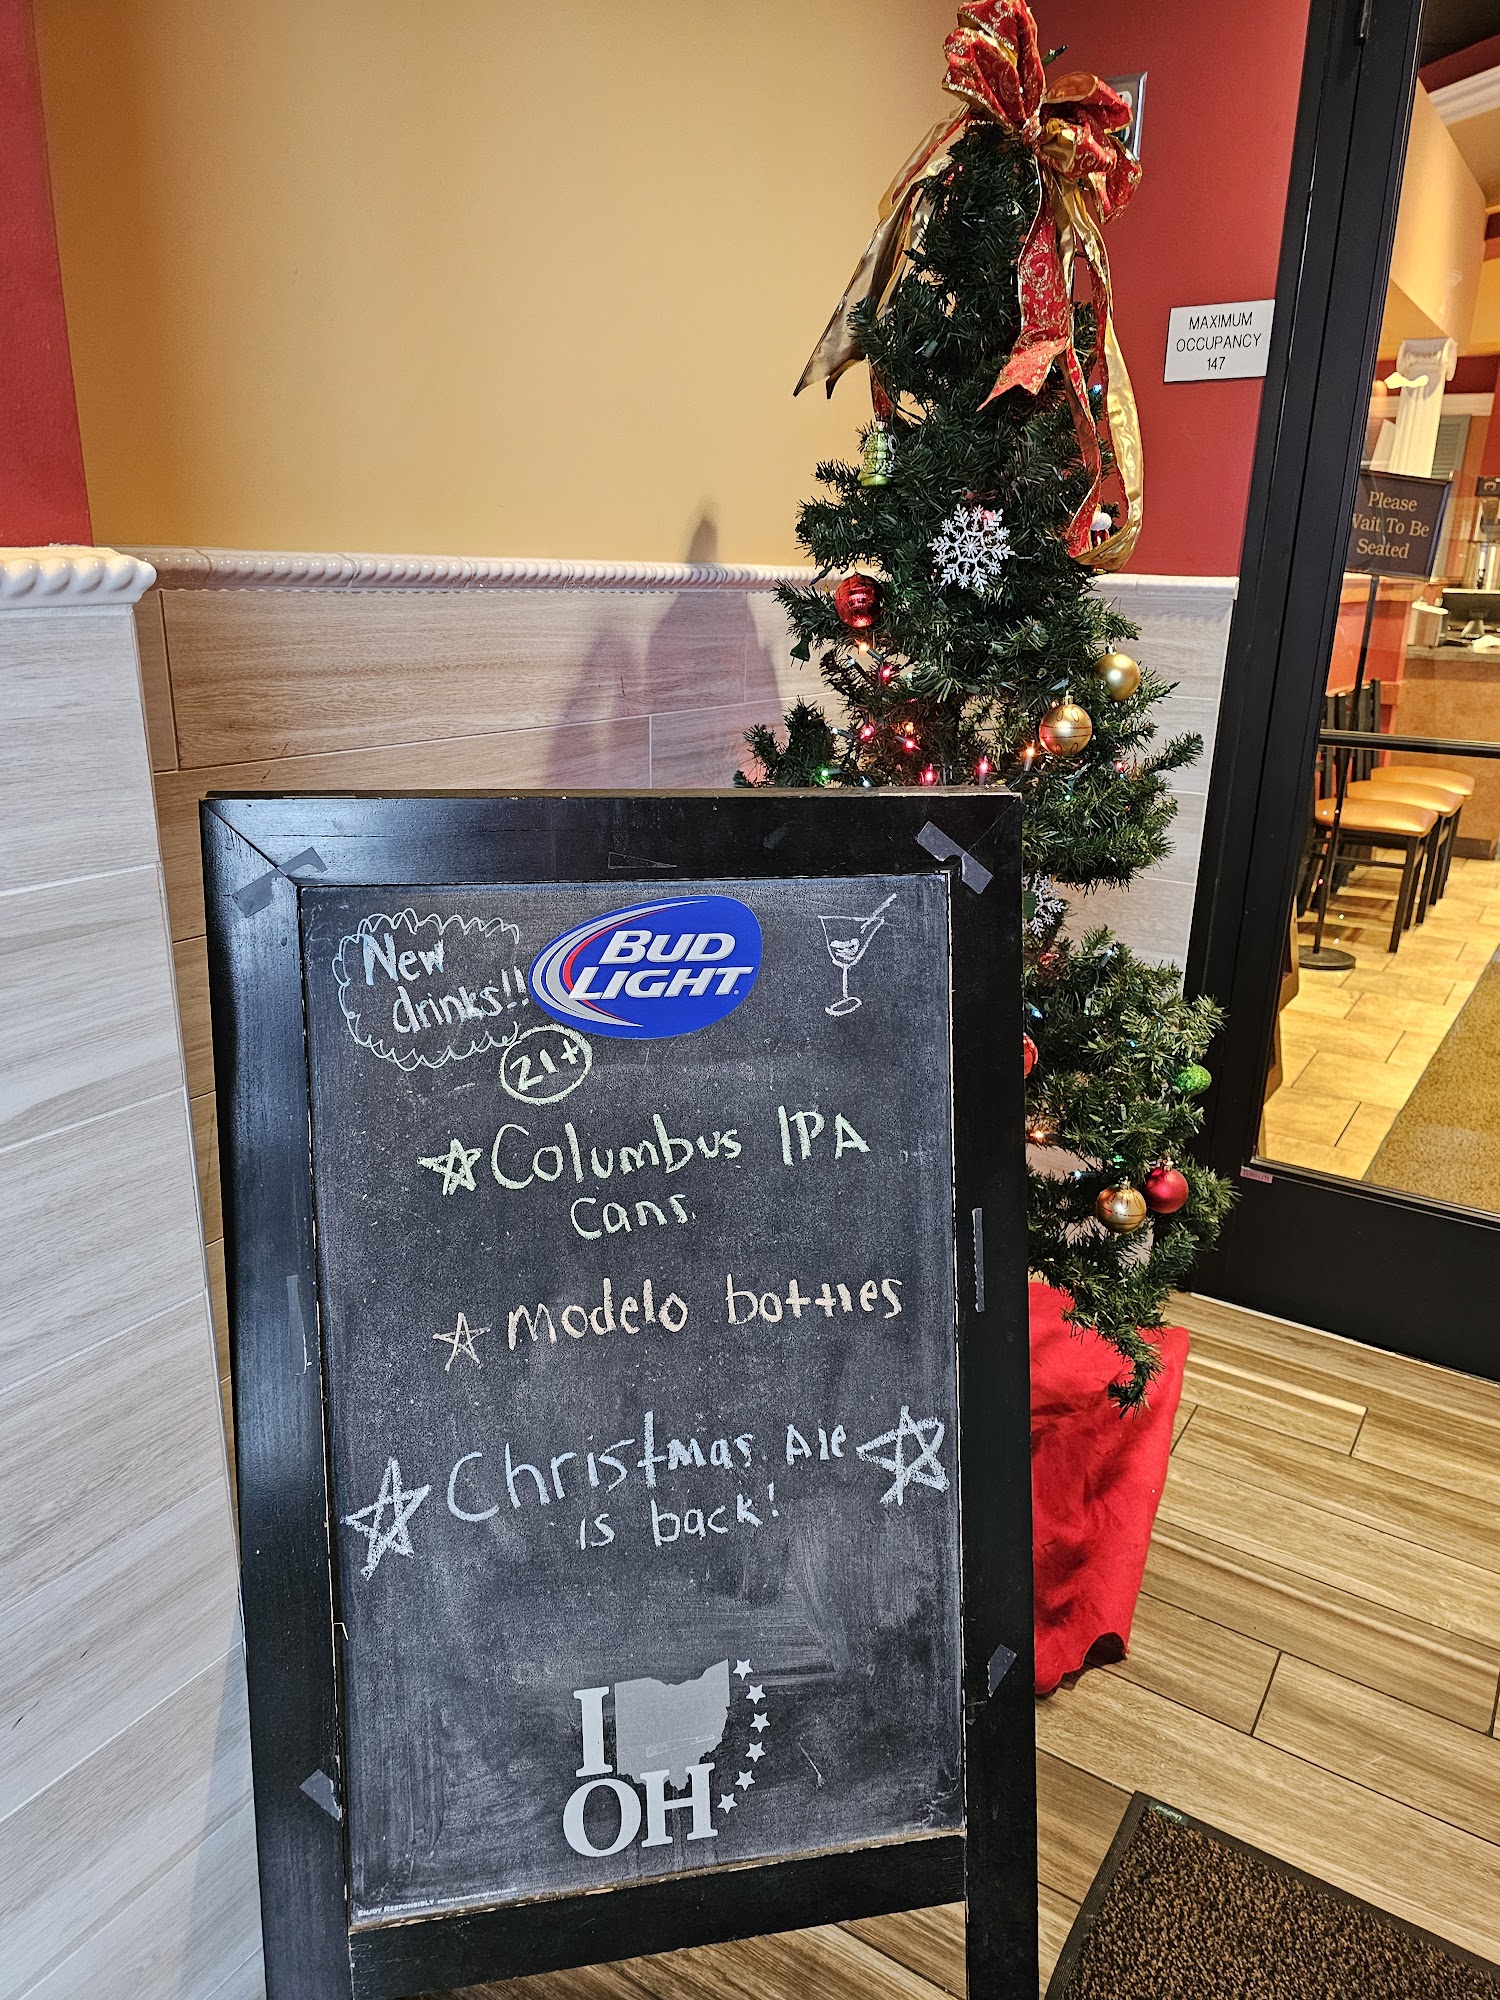 MAXIMUM
OCCUPANCY
147
Please
Wait To Be
Seated
New
drinks!!
BUD
LIGHT
21+
Columbus IPA
Cans.
Modelo bottles
Christmas Ale
is back!
I
OH
ENJOY RESPONSIBLY